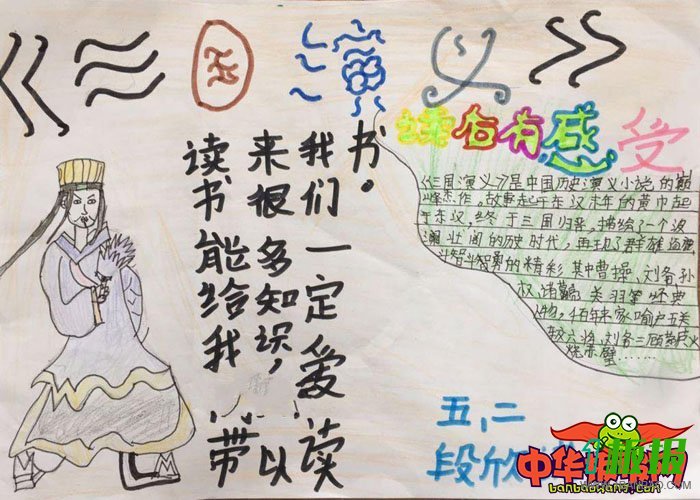 《三国演义》
读后有感受
读书能给我们带
来很多知识，以
我们一定爱读
书。
《三国演义》是中国历史演义小说的巅
峰杰作，故事起于东汉末年的黄巾起
于东汉，终于三国归晋，描绘了一个波
澜壮阔的历史时代，再现了群雄逐鹿
斗智斗勇的精彩其中曹操、刘备、孙
权、诸葛 关羽等经典
人物，千百年来家喻户五关
六将、刘备三顾茅庐火
烧赤壁……
五，二
段欣
中华 报
banbaowang.com